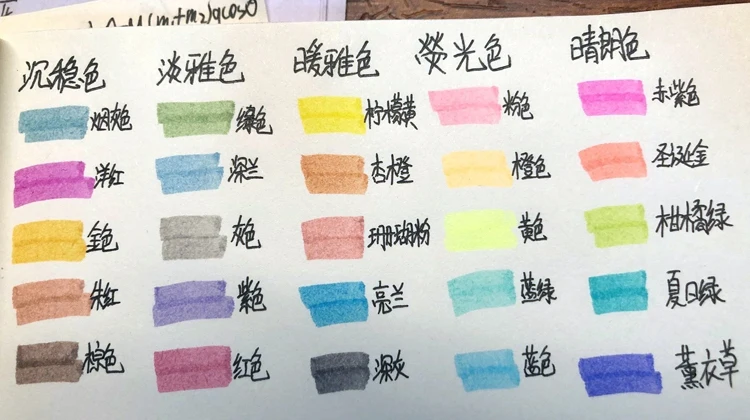 沉稳色 淡雅色 暖雅色 荧光色 晴朗色
烟灰色 绿色 柠檬黄 粉色 赤紫色
洋红 深兰 杏橙 橙色 圣诞金
金色 灰色 珊瑚粉 黄色 柑橘绿
朱红 紫色 亮兰 蓝绿 夏日绿
棕色 红色 深灰 蓝色 薰衣草